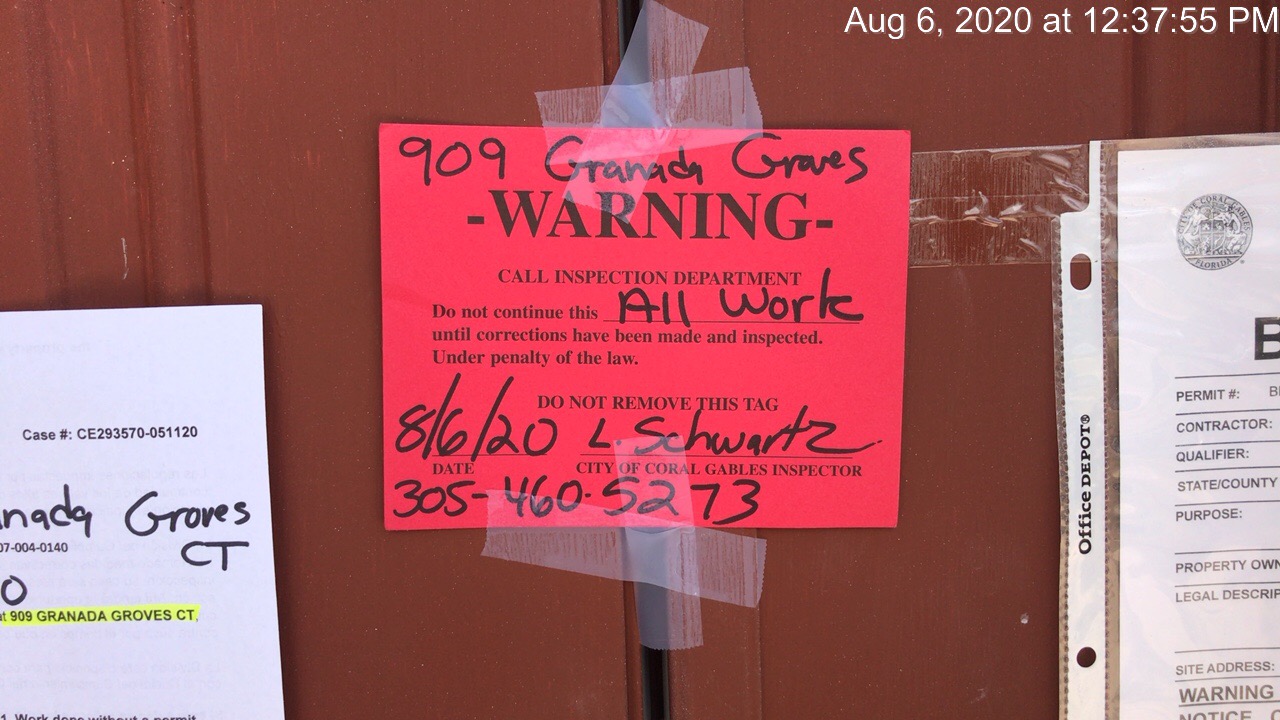 Aug 6, 2020 at 12:37:55 PM
909 Granada Groves
-WARNING-
CALL INSPECTION DEPARTMENT
Do not continue this All Work
until corrections have been made and inspected.
Under penalty of the law.
DO NOT REMOVE THIS TAG
8/6/20 L. Schwartz
DATE CITY OF CORAL GABLES INSPECTOR
305-460-5273
Case #: CE293570-051120
nada Groves
07-004-0140
CT
0
at 909 GRANADA GROVES CT,
1. Work done without a permit
Office DEPOT®
CITY OF CORAL GABLES
FLORIDA
B
PERMIT #: B
CONTRACTOR:
QUALIFIER:
STATE/COUNTY
PURPOSE:
PROPERTY OWN
LEGAL DESCRIP
SITE ADDRESS:
WARNING
NOTICE